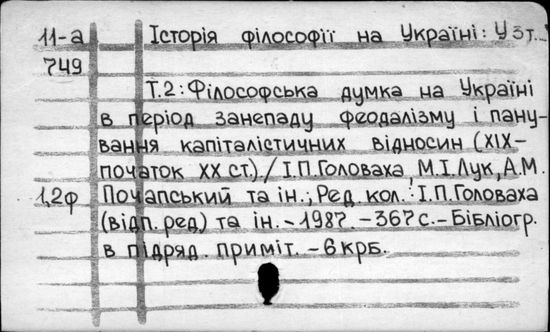 11-а Історія філософії на Україні: У 3т.
749
Т.2: Філософська думка на Україні
в період занепаду феодалізму і пану-
вання капіталістичних відносин (XIX-
початок XX ст.) / І.П.Головаха, М.І.Лук, А.М.
1,2ф Почапський та ін.; Ред. кол.: І.П.Головаха
(відп. ред) та ін. - 1987. - 367 с. - Бібліогр.
в підряд. приміт. - 6 крб.